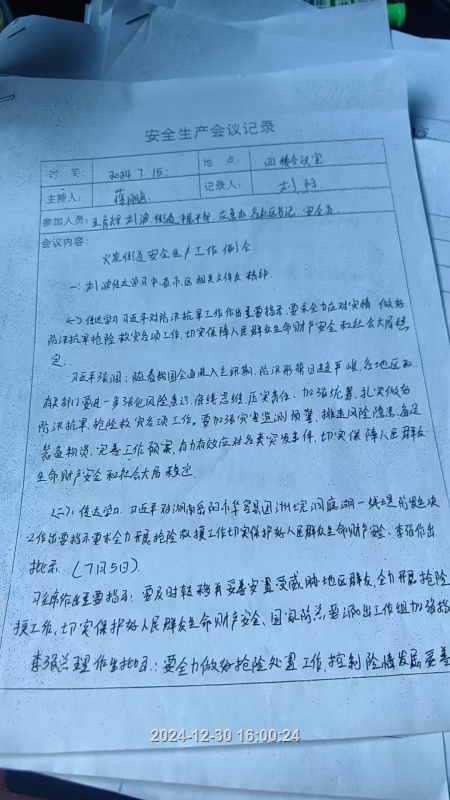 安全生产会议记录
时间： 2024.7.15. 地点： 四楼会议室
主持人： 记录人：
参加人员： 安全员
会议内容：
火龙街道安全生产工作例会
一、刘波传达学习中省市区相关文件及精神.
(一)传达学习习近平对防汛抗旱工作作出重要指示,要求全力应对灾情 做好
防汛抗旱抢险救灾各项工作,切实保障人民群众生命财产安全和社会大局稳
定.
习近平强调：随着我国全面进入主汛期,防汛形势日趋严峻,各地区和
有关部门要进一步强化风险意识,底线思维,压实责任、加强统筹,扎实做好
防汛抗旱,抢险救灾各项工作。要加强灾害监测预警,排查风险隐患备足
装备物资,完善工作预案,有力有效应对各类突发事件,切实保障人民群众
生命财产安全和社会大局稳定.
(二)、传达学习 习近平对湖南岳阳市华容县团洲垸洞庭湖一线堤防发生决
口作出重要指示要求全力开展抢险救援工作切实保护好人民群众生命财产安全、李强作出
批示 (7月5日).
习主席作出重要指示：要及时转移并妥善安置受威胁地区群众,全力开展抢险
援工作,切实保护好人民群众生命财产安全、国家防总要派出工作组加强指
李强总理作出批示：要全力做好抢险处置工作,控制险情发展妥善
2024-12-30 16:00:24